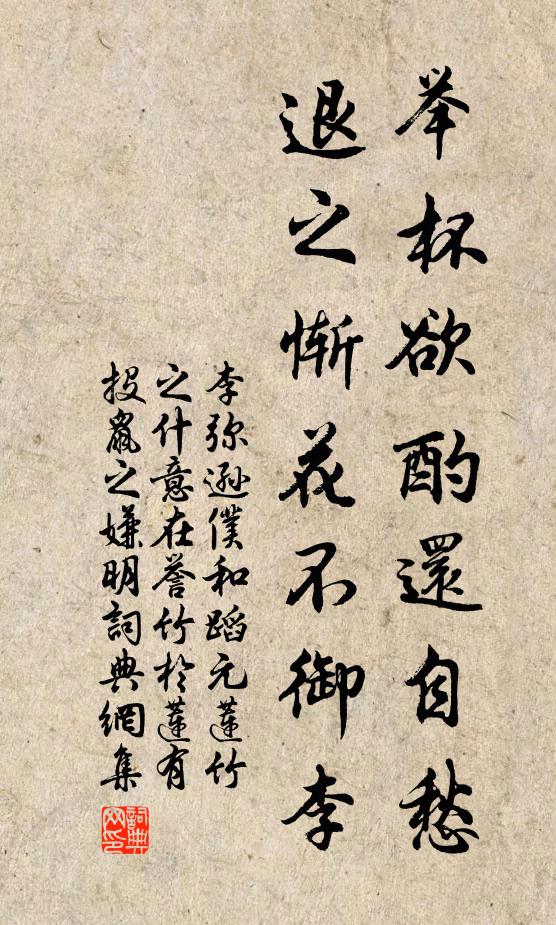 举杯欲酌還自愁
退之惭花不御李
李弥遜僕和蹈元蓮竹
之什意在誉竹於蓮有
投鼠之嫌明詞典網集
詞典
网印